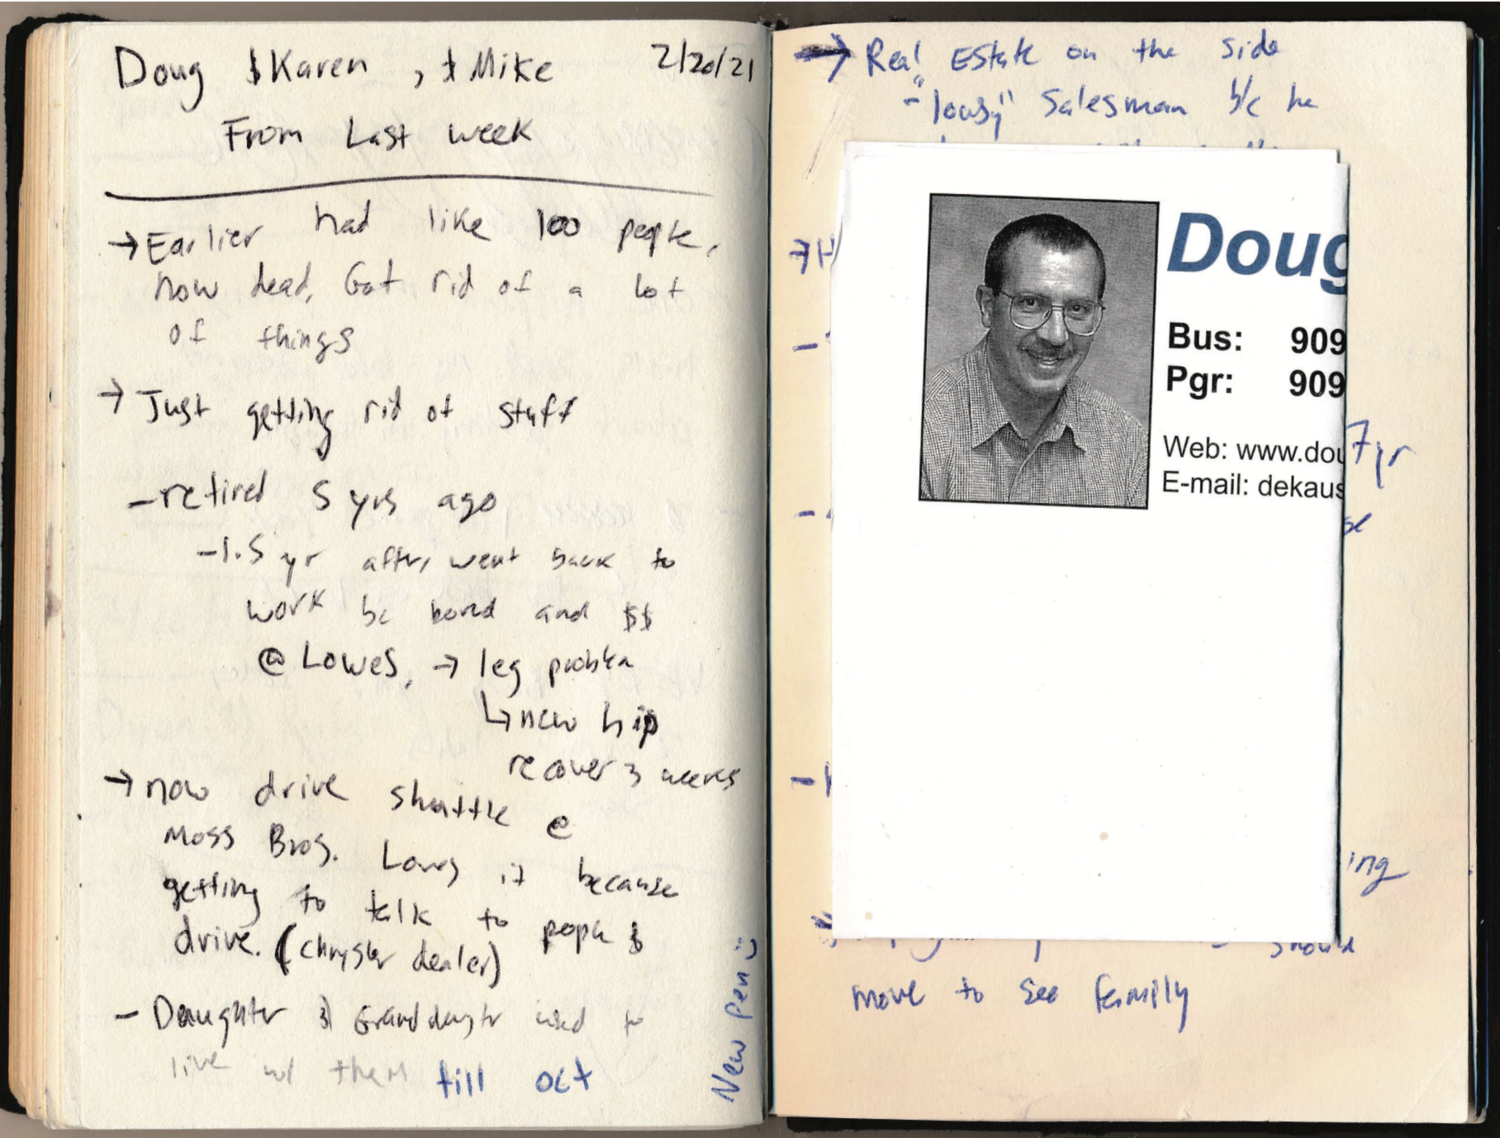 Doug & Karen, & Mike 2/20/21
From Last week
→ Earlier had like 100 people,
now dead, Got rid of a lot
of things
→ Just getting rid of stuff
- retired 5 yrs ago
- 1.5 yr after, went back to
work bc bored and $$
@ Lowes, → leg problem
↳ new hip
recover 3 weeks
→ now drive shuttle @
Moss Bros. Loves it because
getting to talk to people &
drive. (chrysler dealer)
- Daughter & Granddaughter used to
live w/ them till oct
New Pen :)
→ Real Estate on the side
- "lousy" Salesman b/c he
Doug
Bus: 909
Pgr: 909
Web: www.dou
E-mail: dekaus
7yr
se
ing
should
move to see family